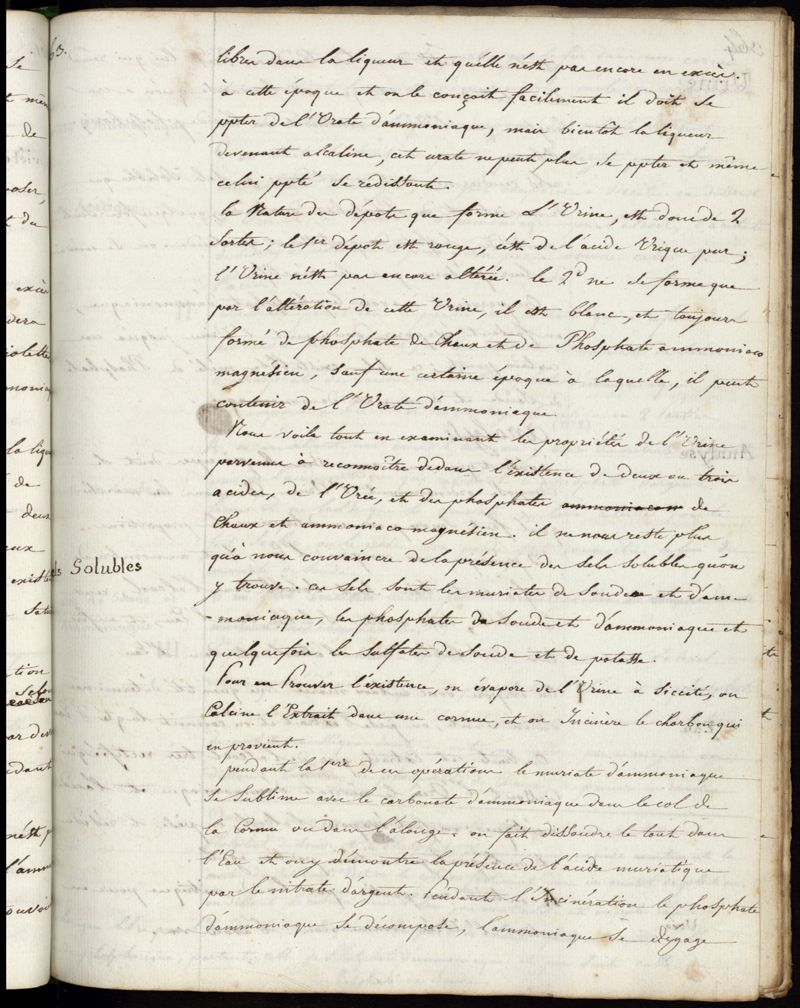 63.
libres dans la liqueur et qu'elle n'est pas encore en excès.
à cette époque et on le conçoit facilement il doit se
ppter de l'Urate d'ammoniaque, mais bientôt la liqueur
devenant alcaline, cet urate ne peut plus se ppter et même
celui ppté se redissout.
la Nature des dépots que forme L'Urine, est donc de 2
Sortes; le 1er dépot est rouge, c'est de l'acide Urique pur;
l'Urine n'est pas encore altérée. le 2d ne se forme que
par l'altération de cette Urine, il est blanc, et toujours
formé de phosphate de Chaux et de Phosphate ammoniaco
magnésien, sauf une certaine époque à laquelle, il peut
contenir de l'Urate d'ammoniaque
Nous voila tout en examinant les propriétés de l'Urine
parvenus à reconnoître dedans l'éxistence de deux ou trois
acides, de l'Urée, et des phosphates ammoniacaux de
Chaux et ammoniaco magnésien. il ne nous reste plus
qu'à nous convaincre de la présence des sels solubles qu'on
Solubles
y trouve. ces Sels sont les muriates de Soude et d'am-
-moniaque, les phosphates de Soude et d'ammoniaque et
quelquefois les Sulfates de Soude et de potasse.
Pour en Prouver l'éxistence, on évapore de l'Urine à siccité, on
Calcine l'Extrait dans une cornue, et on Incinère le charbon qui
en provient.
pendant la 1ere de ces opérations le muriate d'ammoniaque
Se Sublime avec le carbonate d'ammoniaque dans le col de
la Cornue ou dans l'alonge. on fait dissoudre le tout dans
l'Eau et on y démontre la présence de l'acide muriatique
par le nitrate d'argent. Pendant l'Incinération le phosphate
d'ammoniaque se décompose, l'ammoniaque se dégage